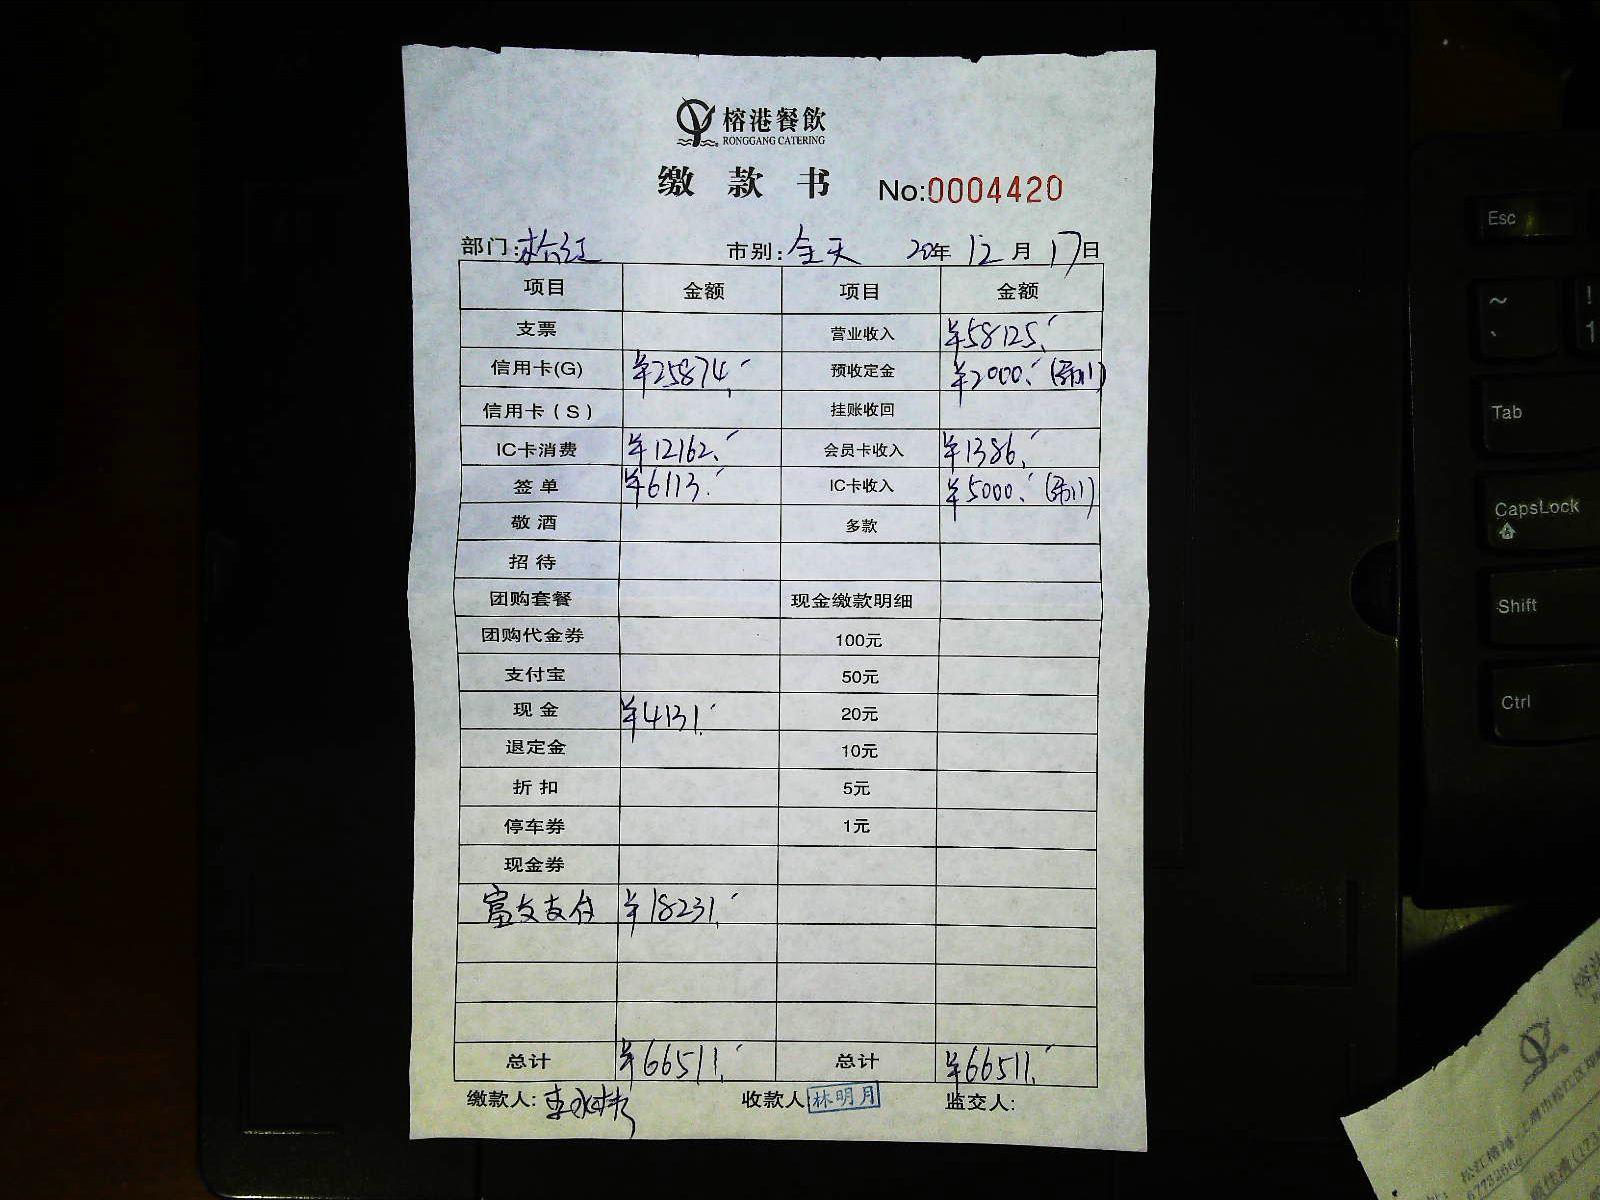 榕港餐飲
RONGGANG CATERING
缴款书 No:0004420
部门:松江 市别:全天 20年12月17日
项目 金额 项目 金额
支票 营业收入 ¥58125.-
信用卡(G) ¥25874.- 预收定金 ¥2000.-
信用卡(S) 挂账收回
IC卡消费 ¥12162.- 会员卡收入 ¥1386.-
签单 ¥6113.- IC卡收入 ¥5000.-
敬酒 多款
招待
团购套餐 现金缴款明细
团购代金券 100元
支付宝 50元
现金 ¥4131.- 20元
退定金 10元
折扣 5元
停车券 1元
现金券
富友支付 ¥18231.-
总计 ¥66511.- 总计 ¥66511.-
缴款人: 收款人 林明月 监交人:
Esc
~
!
1
Tab
CapsLock
Shift
Ctrl